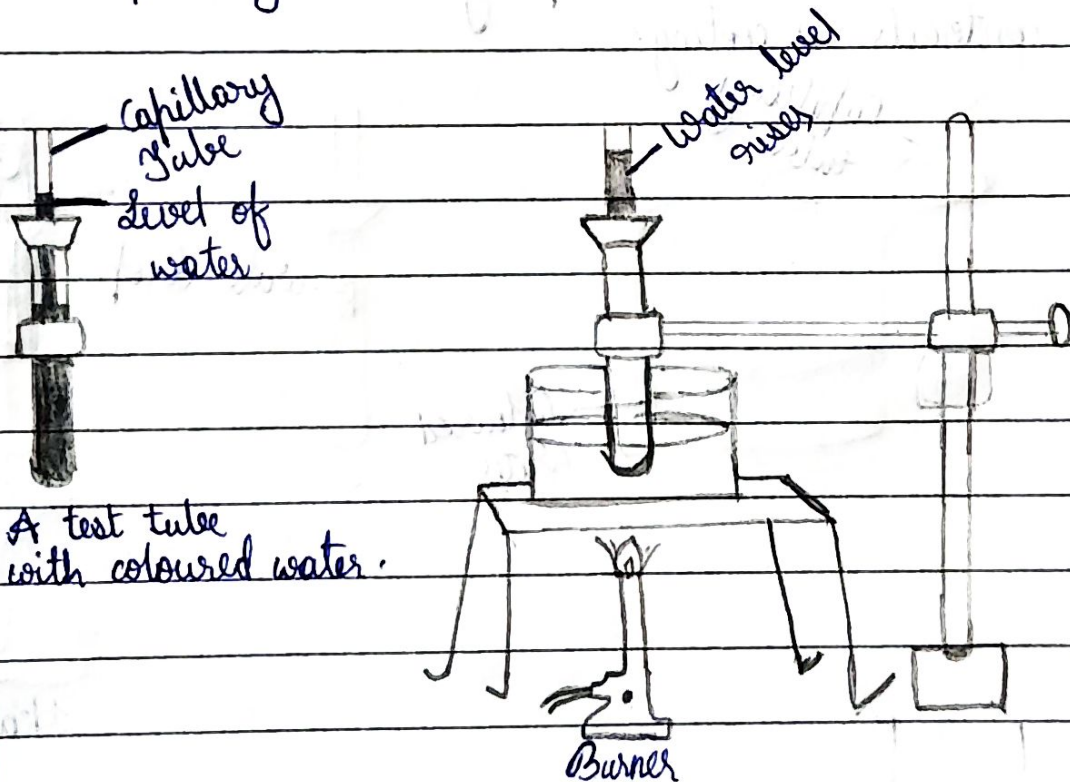 Capillary
Tube
Level of
water
Water level
rises
A test tube
with coloured water.
Burner